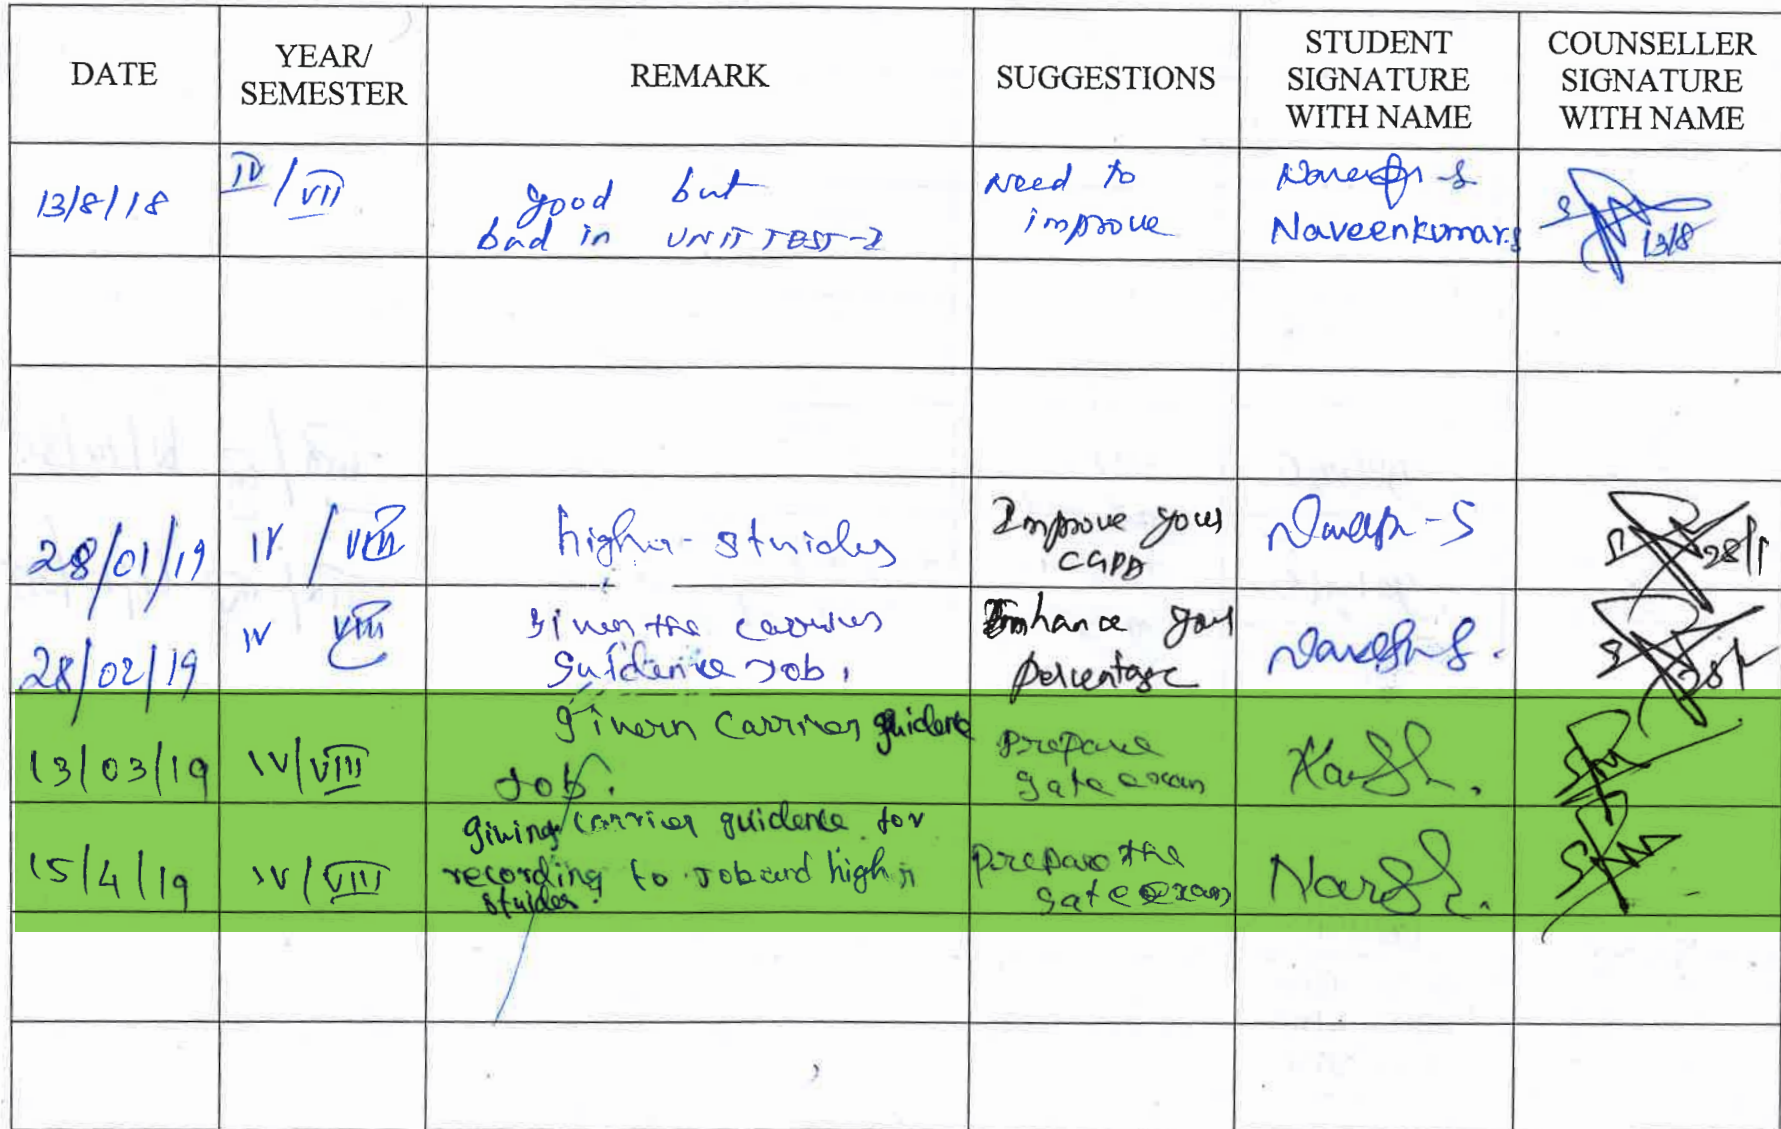 DATE
YEAR/
SEMESTER
REMARK
SUGGESTIONS
STUDENT
SIGNATURE
WITH NAME
COUNSELLER
SIGNATURE
WITH NAME
13/8/18
IV / VII
good but
bad in UNIT TEST-I
Need to
improve
Naveenkumar.S
13/8
28/01/19
IV / VIII
higher studies
Improve your
CGPA
28/1
28/02/19
IV VIII
given the carrier
guidence Job.
Enhance your
percentage
13/03/19
IV/VIII
givern carrier guidence
Job.
prepare
gate exan
15/4/19
IV/VIII
giving carrier guidence for
recording to Job and high
studes.
prepare the
gate exan